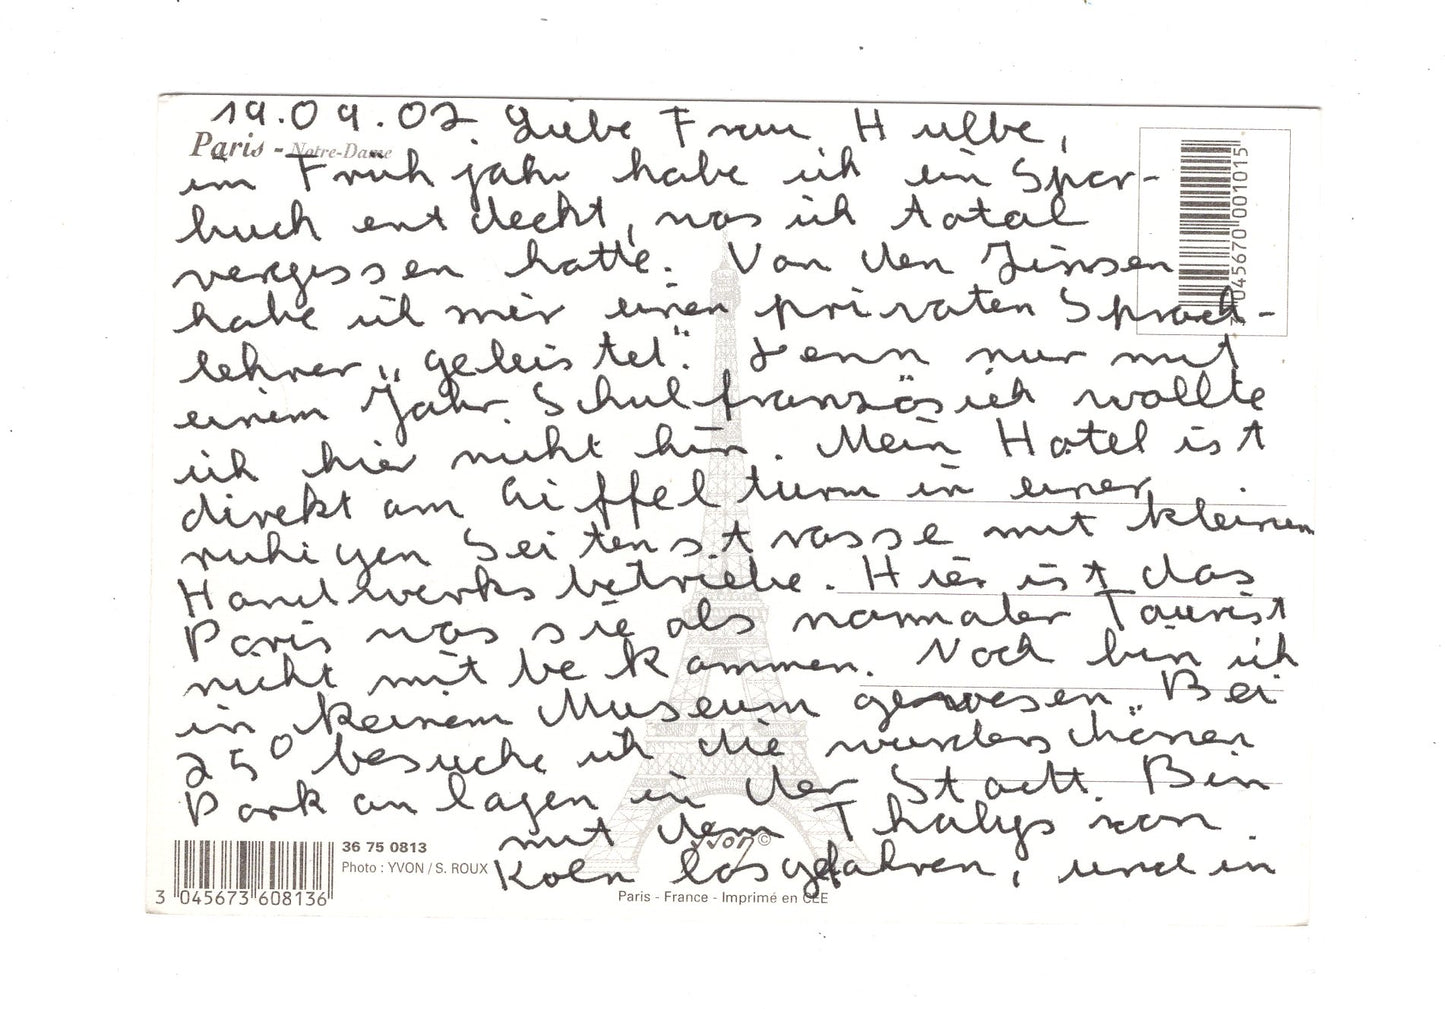 19.09.07 Liebe Frau Hulbe,
Paris - Notre-Dame
im Frühjahr habe ich ein Spar-
buch entdeckt, was ich total
vergessen hatte. Von den Zinsen
habe ich mir einen privaten Sprach-
lehrer „geleistet". Denn nur mit
einem Jahr Schulfranzösich wollte
ich hier nicht hin. Mein Hotel ist
direkt am Eiffelturm in einer
ruhigen Seitenstrasse mit kleinen
Handwerksbetriebe. Hier ist das
Paris was sie als normaler Tourist
nicht mitbekommen. Noch bin ich
in keinem Museum gewesen. Bei
25° besuche ich die wunderschönen
Parkanlagen in der Stadt. Bin
mit dem Thalys von
Köln losgefahren, und in
7 045670 001015
36 75 0813
Photo : YVON / S. ROUX
yvon ©
3 045673 608136
Paris - France - Imprimé en CEE